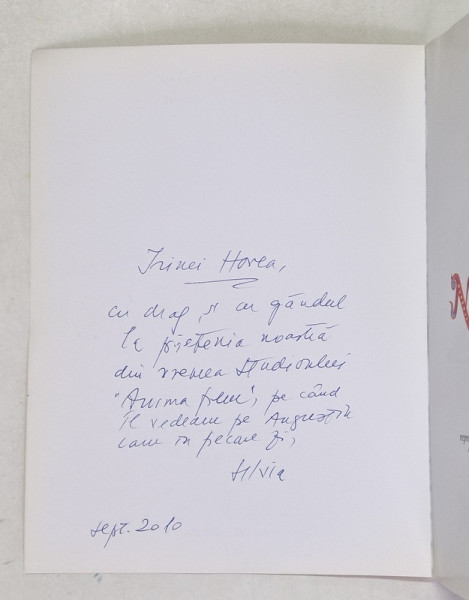 Irinei Horea,
cu drag, și cu gândul
la prietenia noastră
din vremea Studioului
"Anima film", pe când
îl vedeam pe Augustin
cam în fiecare zi,
Silvia
sept. 2010
N